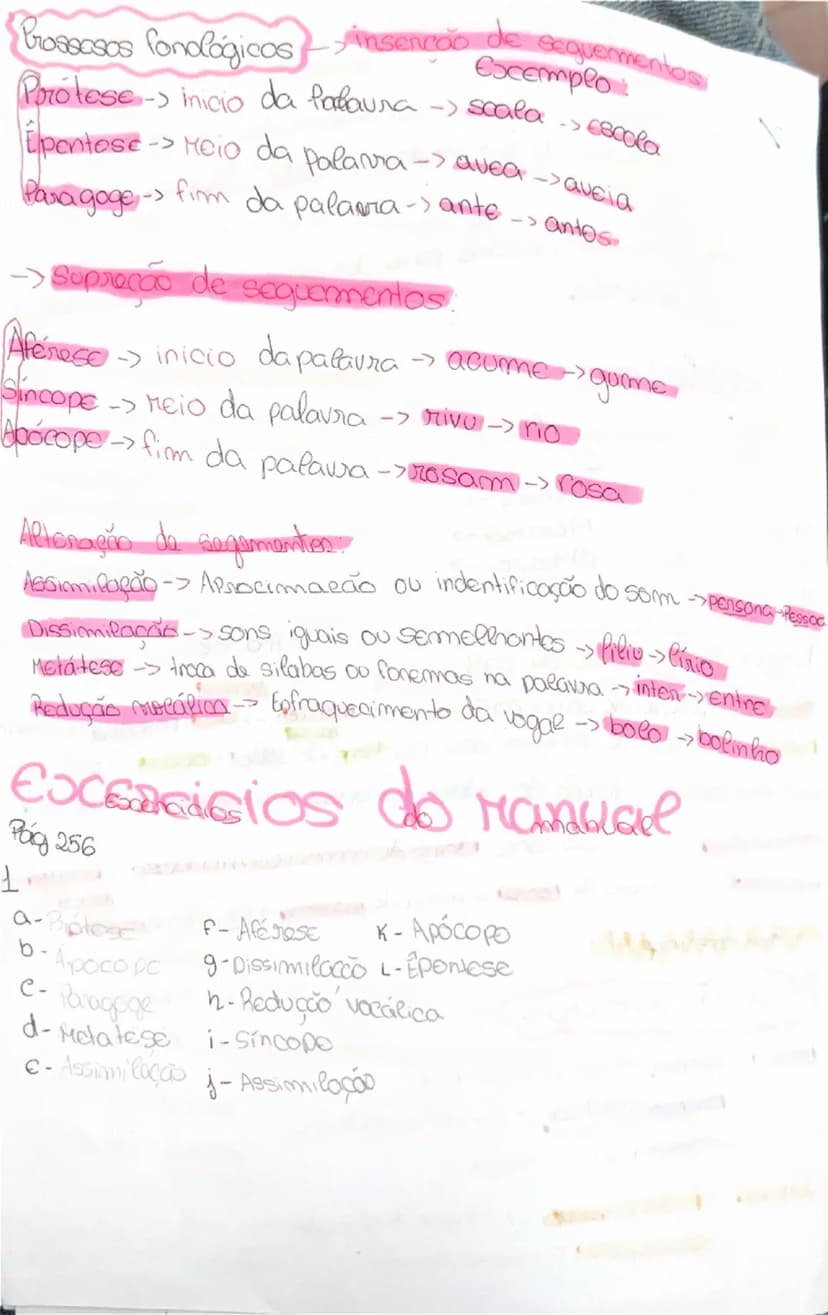 Prossosos fonológicos -> insenção de seguermentos
Escemplo:
Prótese -> inicio da palavra -> scala -> escola
Êpentese -> Meio da palavra -> avea -> aveia
Paragoge -> fim da palavra -> ante -> antes
-> Supreção de seguermentos:
Aférese -> inicio da palavra -> acume -> gume
Síncope -> Meio da palavra -> rivu -> rio
Apócope -> fim da palavra -> rosam -> rosa
Alteração de segmentos:
Assimilação -> Aprocimaeão ou indentificação do som -> persona -> Pessoa
Dissimilação -> sons iguais ou semelhantes -> filiu -> lírio
Metátese -> troca de silabas ou fonemas na palavra -> inter -> entre
Redução vocálica -> Enfraquecimento da vogal -> bolo -> bolinho
Excercicios do Manual
Excercicios do manual
Pág 256
1.
a- Prótese f- Aférese K- Apócope
b- Apocope g- Dissimilação L- Êpentese
c- Paragoge h- Redução vocálica
d- Metatese i- Síncope
e- Assimilação j- Assimilação